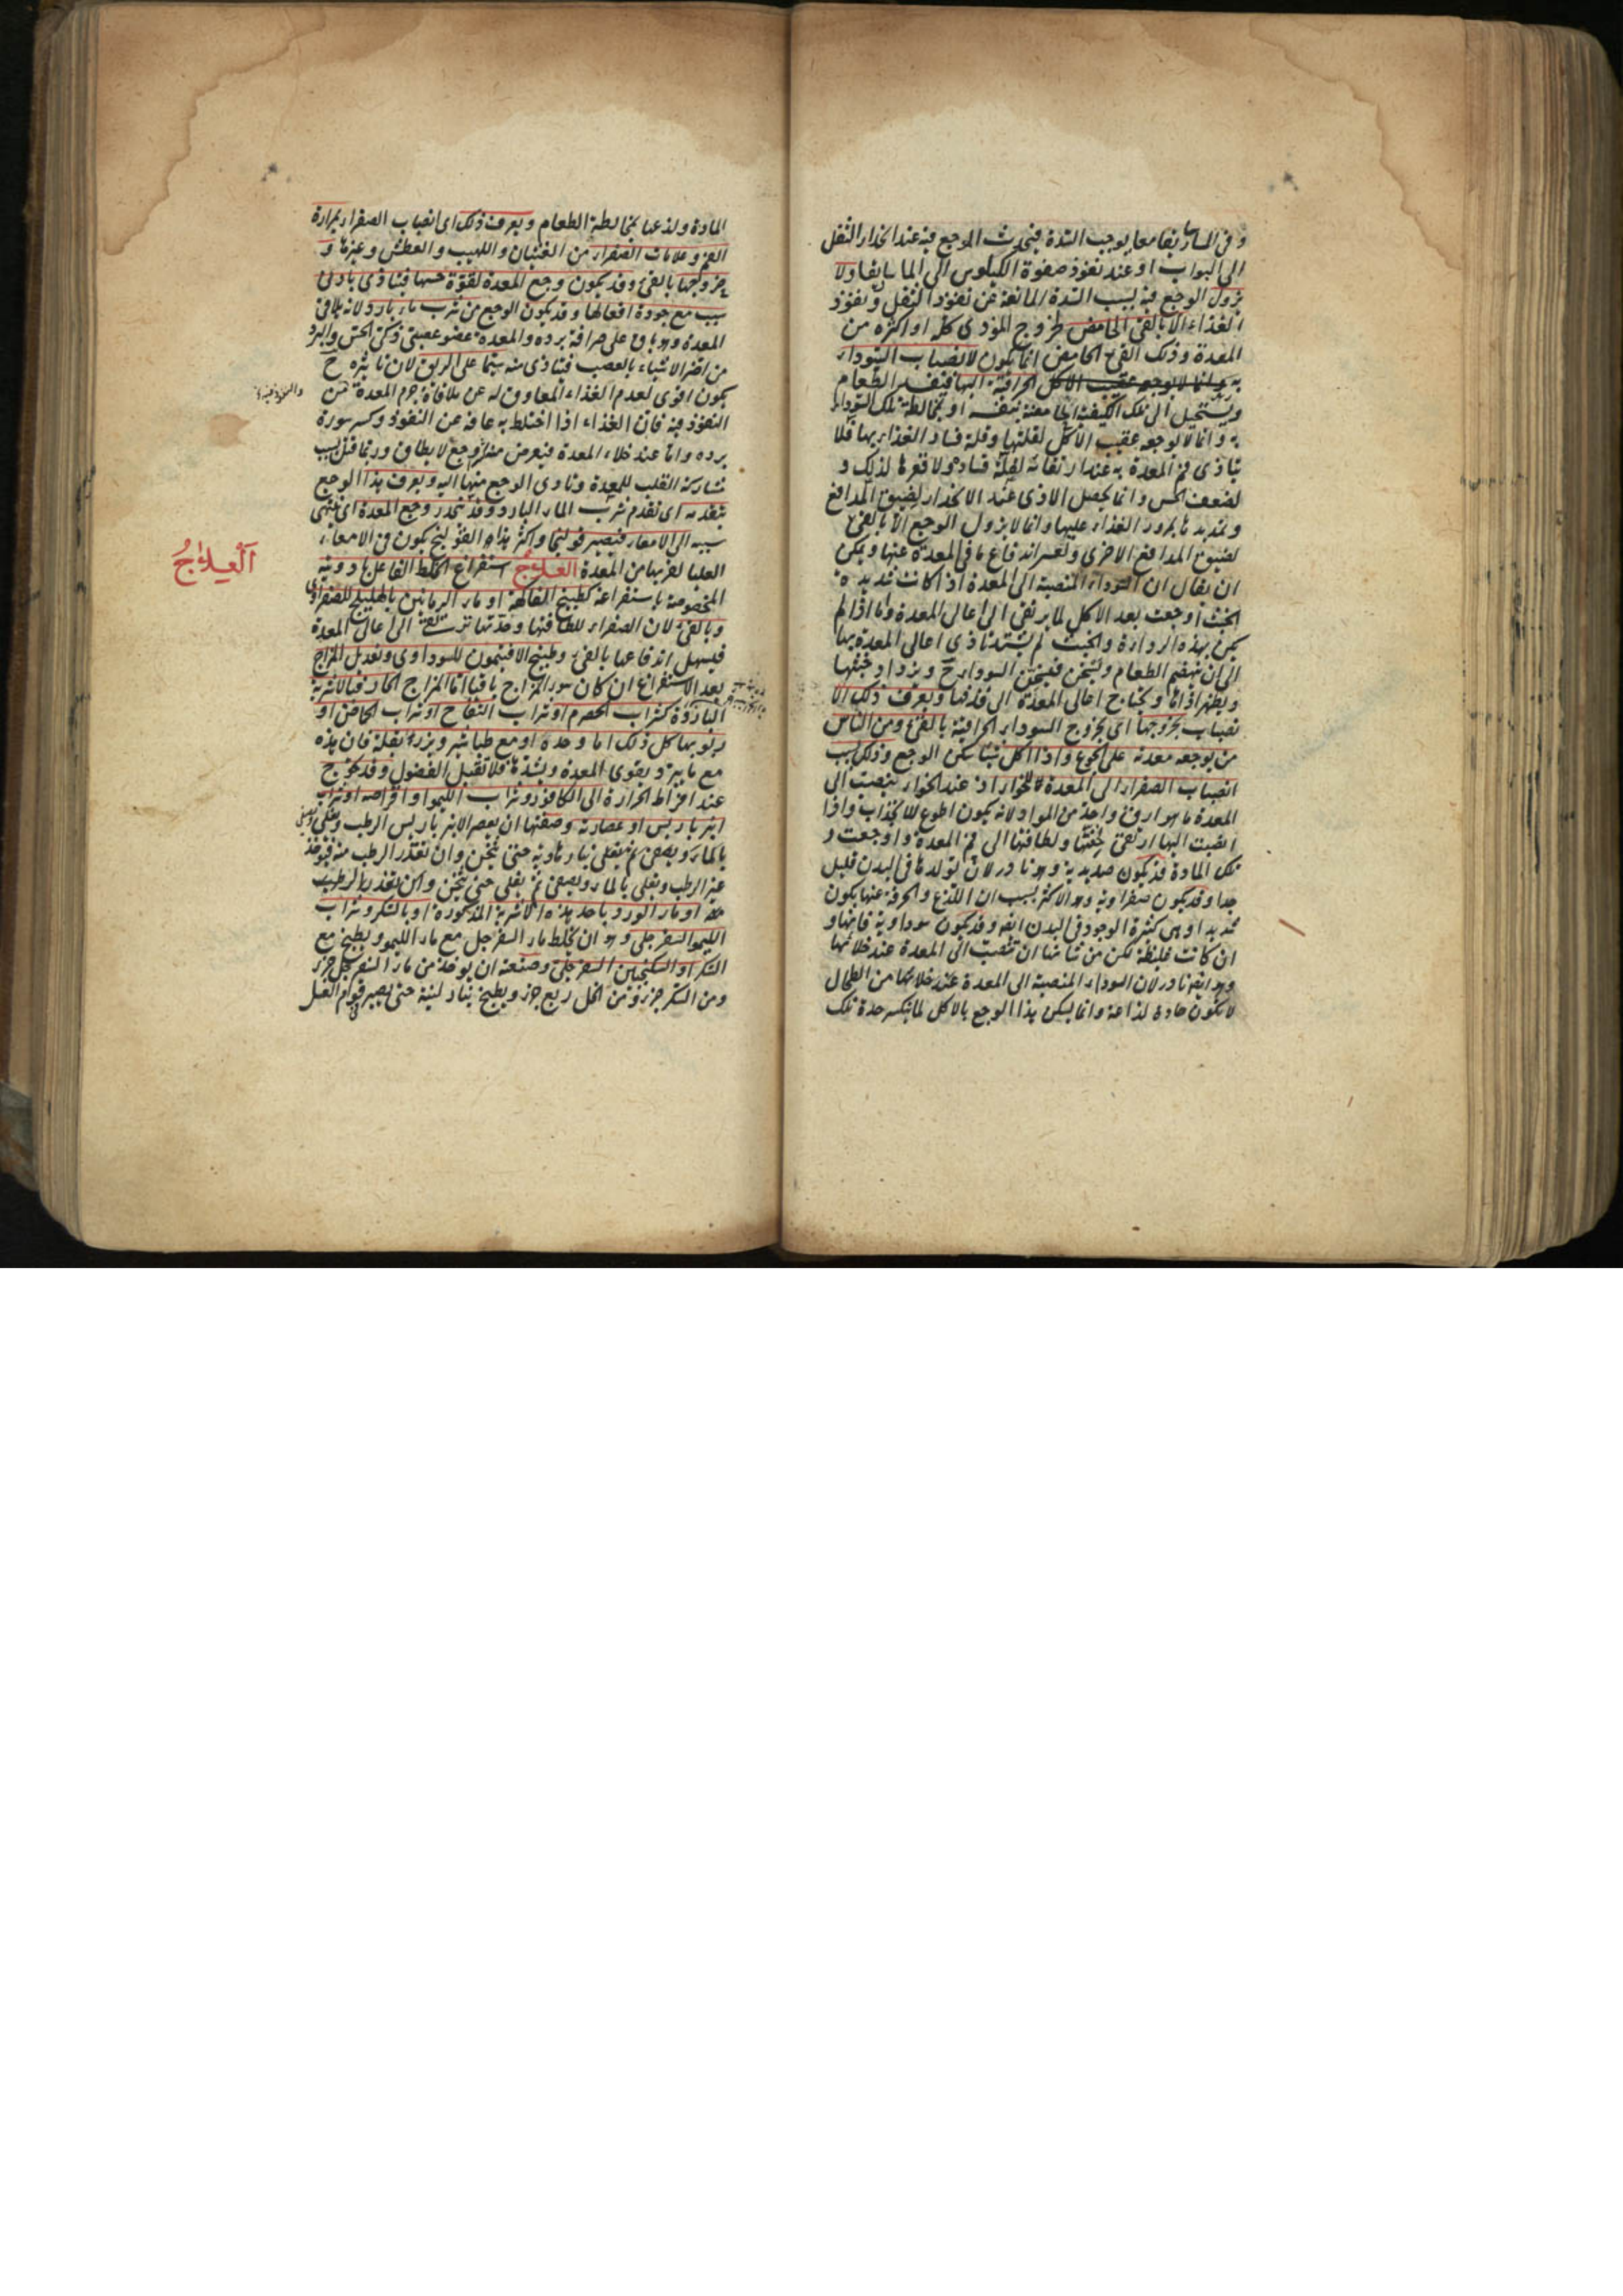 و فى الماساريقا معا يوجب السدة فيحدث الوجع فيه عند انحدار الثفل
الى البواب او عند نفوذ صفوة الكيلوس الى الماساريقا ولا
يزول الوجع فيه بسبب السدة المانعة عن نفوذ الثفل و نفوذ
الغذاء الا بالقئ الحامض لخروج المؤذى كله او اكثره من
المعدة وذلك القئ الحامض انما يكون لانصباب السوداء
اليها فيفسد الطعام
ويستحيل الى تلك الكيفية الحامضة بنفسه او بمخالطة تلك السوداء
به وانما لا يوجع عقيب الاكل لقلتها وقلة فساد الغذاء بها فلا
يتاذى فم المعدة به عند ارتفاعه لقلة فساده ولا قعرها لذلك و
لضعف الحس وانما يحصل الاذى عند الانحدار لضيق المدافع
و تمديدها بمرور الغذاء عليها وانما لا يزول الوجع الا بالقئ
لضيق المدافع الاخرى ولعسر اندفاع ما فى المعدة عنها ويمكن
ان يقال ان السوداء المنصبة الى المعدة اذا كانت شديدة
الخبث اوجعت بعد الاكل لما يرتقى الى اعالى المعدة واما اذا لم
يكن بهذه الرداءة والخبث لم يشتد تاذى اعالى المعدة بها
الى ان ينهضم الطعام ويسخن فيسخن السوداء ح ويزداد خبثها
ويظهر اذاها ويحتاج اعالى المعدة الى قذفها ويعرف ذلك الا
نصباب بخروجها اى بخروج السوداء الحرافية بالقئ ومن الناس
من يوجعه معدته على الجوع واذا اكل شيئا سكن الوجع وذلك بسبب
انصباب الصفراء الى المعدة للخواء اذ عند الخواء ينصب الى
المعدة ما هو ارق واحد من المواد لانه يكون اطوع للانجذاب واذا
انصبت اليها ارتقى لخفتها ولطافتها الى فم المعدة واوجعت و
تلك المادة قد يكون صديدية وهو نادر لان تولدها فى البدن قليل
جدا وقد يكون صفراوية وهو الاكثر بسبب ان اللذع والحرقة عنها يكون
شديدا وهى كثيرة الوجود فى البدن ايضا وقد يكون سوداوية فانها و
ان كانت غليظة لكن من شانها ان تنصب الى المعدة عند خلائها
وهو ايضا نادر لان السوداء المنصبة الى المعدة عند خلائها من الطحال
لا تكون حادة لذاعة وانما يسكن هذا الوجع بالاكل لما ينكسر حدة تلك
المادة ولذعها بمخالطة الطعام ويعرف ذلك اى انصباب الصفراء بمرارة
الفم وعلامات الصفراء من الغثيان واللهيب والعطش وغيرها و
خروجها بالقئ وقد يكون وجع المعدة لقوة حسها فيتاذى بادنى
سبب مع جودة افعالها وقد يكون الوجع من شرب ماء بارد لانه يلاقى
المعدة وهو باق على صرافة برده والمعدة عضو عصبى ذكى الحس والبرد
من اضر الاشياء بالعصب فيتاذى منه سيما على الريق لان تاثيره ح
يكون اقوى لعدم الغذاء المعاوق له عن ملاقاة جرم المعدة عن
النفوذ فيه فان الغذاء اذا اختلط به عاقه عن النفوذ وكسر سورة
برده واما عند خلاء المعدة فيعرض منه وجع لا يطاق وربما قتل بسبب
مشاركة القلب للمعدة وتادى الوجع منها اليه ويعرف هذا الوجع
بتقدمه اى تقدم شرب الماء البارد وقد ينحدر وجع المعدة اى ينتهى
سببه الى الامعاء فيصير قولنجا واكثر هذا القولنج يكون فى الامعاء
العليا لقربها من المعدة العلاج استفراغ الخلط الفاعل بادويته
المخصوصة باستفراغه كطبيخ الفاكهة او ماء الرمانين بالهليلج للصفراوى
وبالقئ لان الصفراء للطافتها وحدتها ترتقى الى اعالى المعدة
فيسهل اندفاعها بالقئ وطبيخ الافتيمون للسوداوى وتعديل المزاج
بعد الاستفراغ ان كان سوء المزاج باقيا اما المزاج الحار فبالاشربة
الباردة كشراب الحصرم او شراب التفاح او شراب الحماض او
ربوبها كل ذلك اما وحده او مع طباشير وبزر بقلة فان هذه
مع ما يبرد ويقوى المعدة ويشدها فلا تقبل الفضول وقد يحوج
عند افراط الحرارة الى الكافور وشراب الليمو او اقراصه او شراب
انبرباريس او عصارته وصفتها ان يعصر الانبرباريس الرطب
بالماء ويصفى ثم يغلى بنار هادية حتى يثخن وان تعذر الرطب منه فيؤخذ
غير الرطب ويغلى بالماء ويصفى ثم يغلى حتى يثخن
او ماء الورد باحد هذه الاشربة المذكورة او بالسكر وشراب
الليمو السفرجلى وهو ان يخلط ماء السفرجل مع ماء الليمو ويطبخ مع
السكر او السكنجبين السفرجلى وصنعته ان يؤخذ من ماء السفرجل جزء
ومن السكر جزء ومن الخل ربع جزء ويطبخ بنار لينة حتى يصير قوام العسل
العلاج